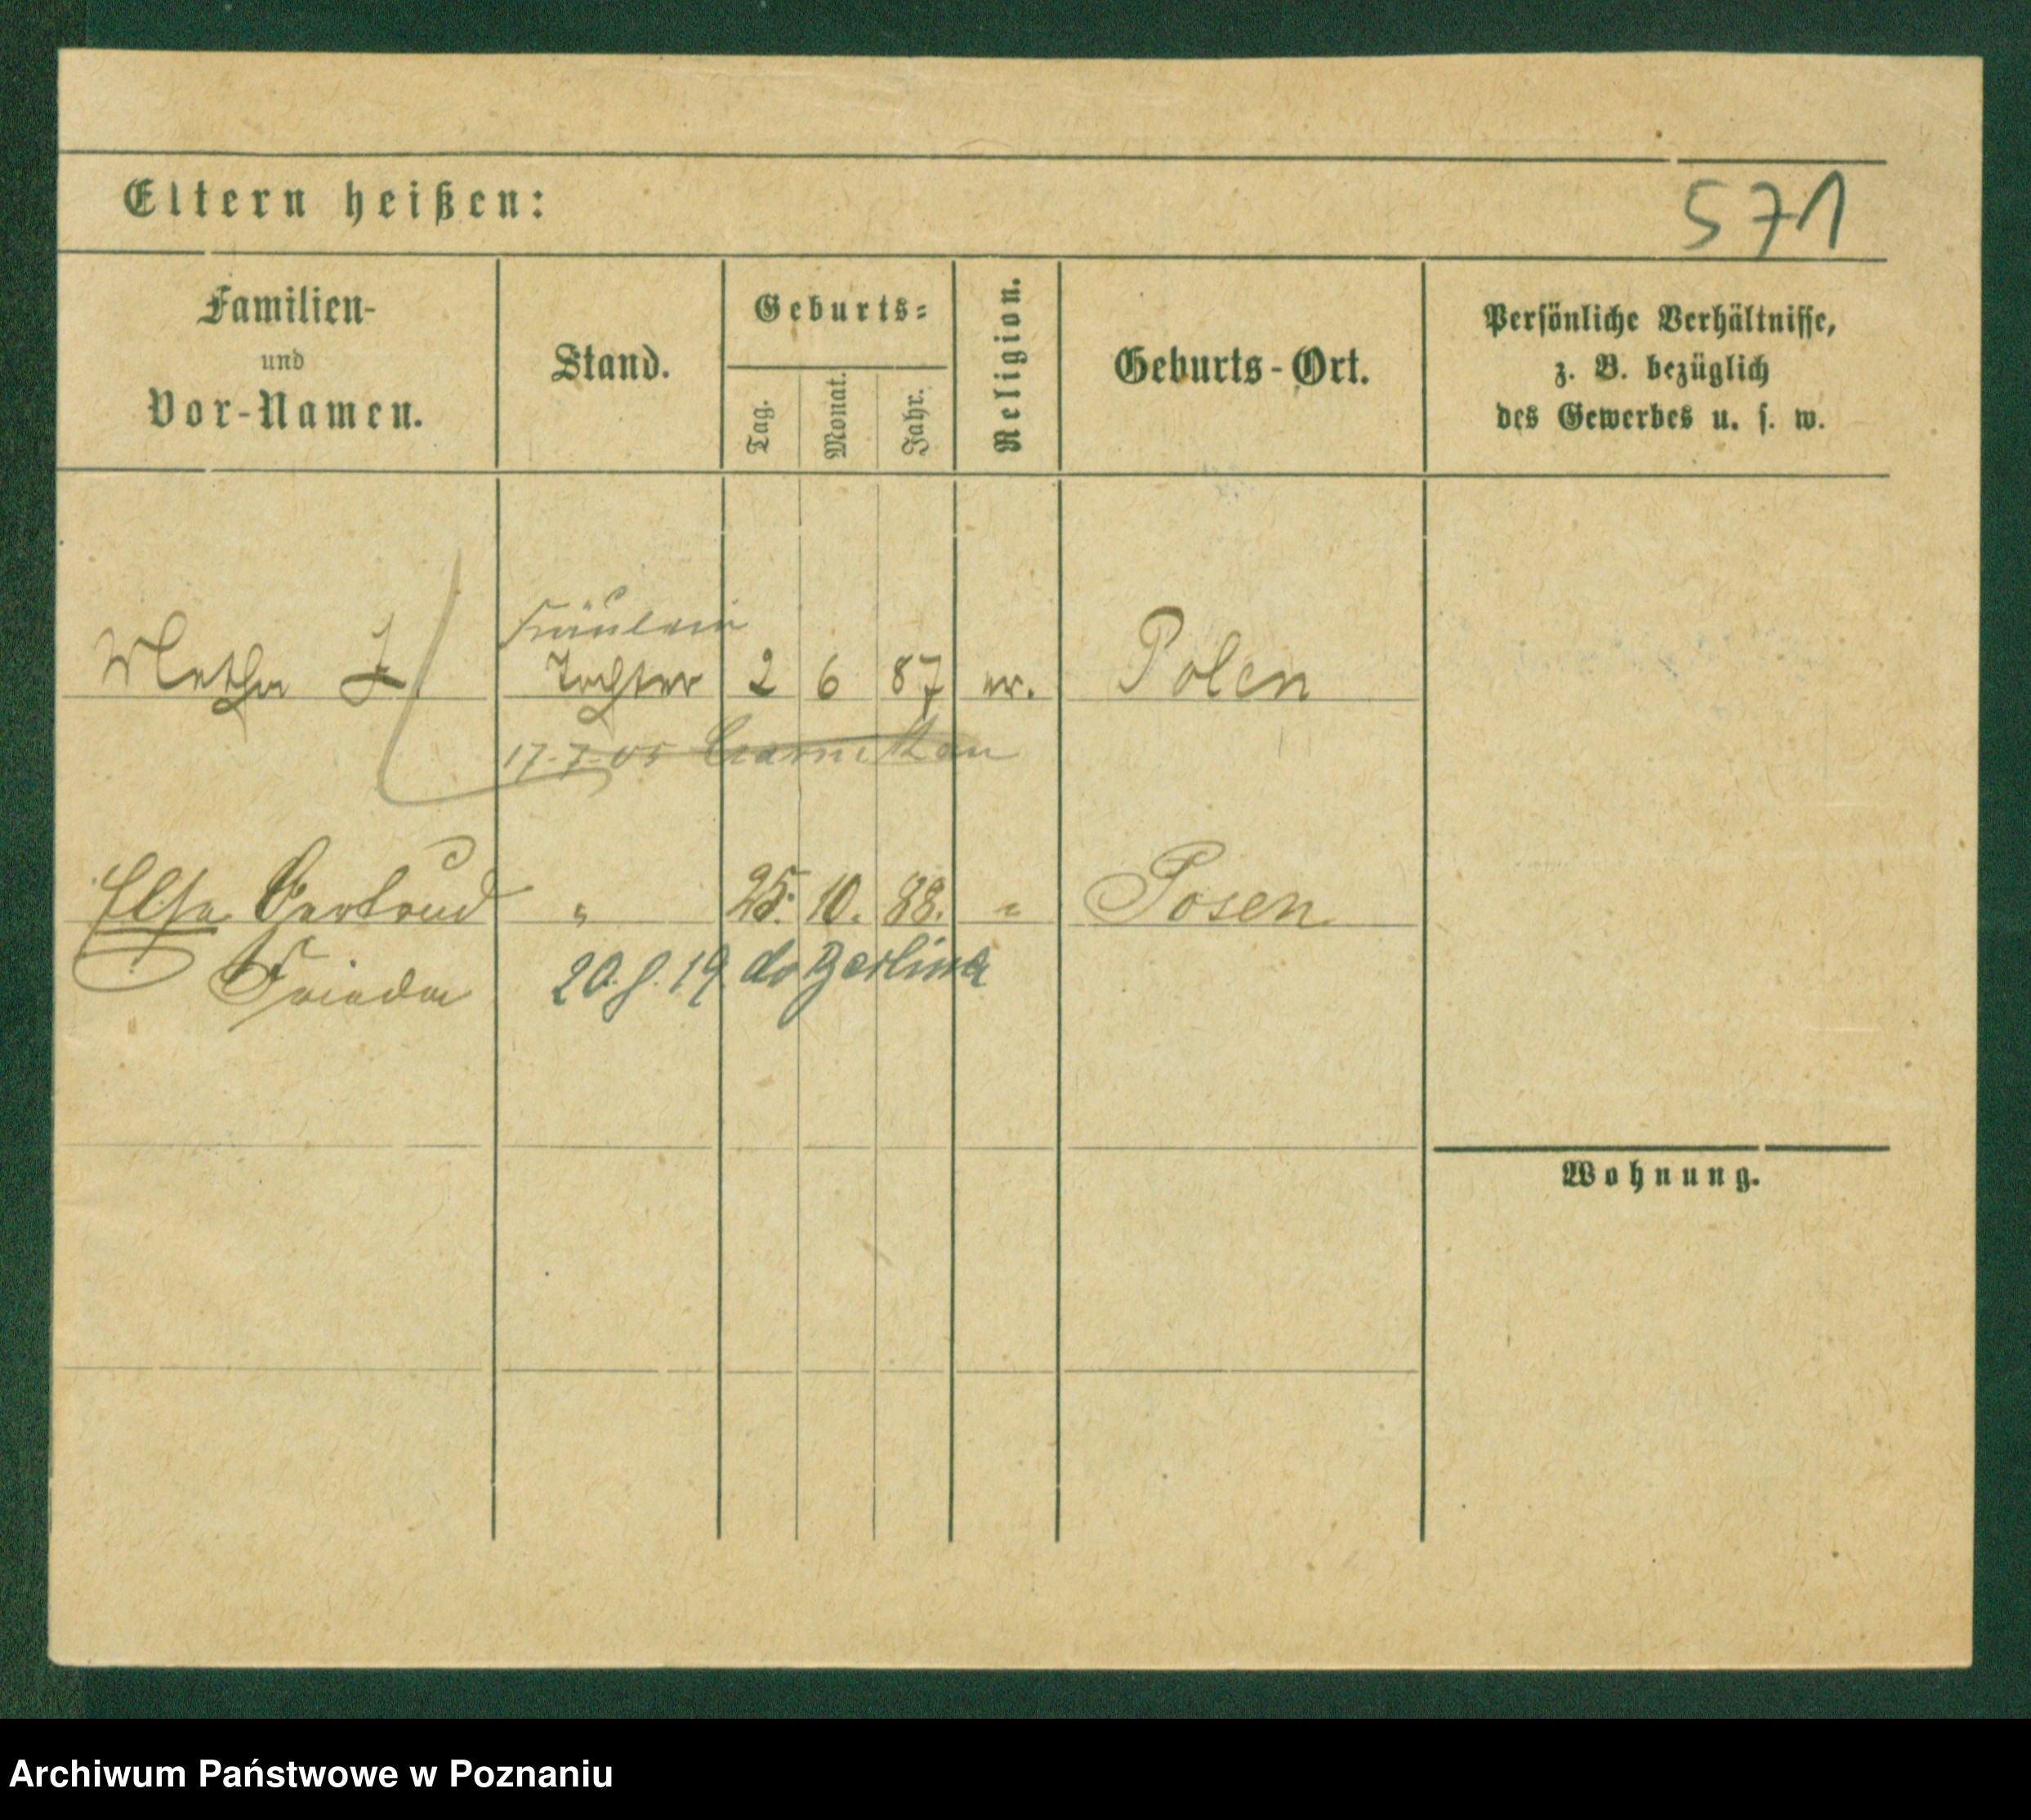 Eltern heißen:
571
Familien-
und
Vor-Namen.
Stand.
Geburts-
Tag.
Monat.
Jahr.
Religion.
Geburts-Ort.
Persönliche Verhältnisse,
z. B. bezüglich
des Gewerbes u. s. w.
Fräulein
Metha Tochter 2 6 87 ev. Polen
17-7-05 Czarnikau
Else Gertrud " 25. 10. 88. " Posen
Frieda 20. 8. 19 do Berlina
Wohnung.
Archiwum Państwowe w Poznaniu